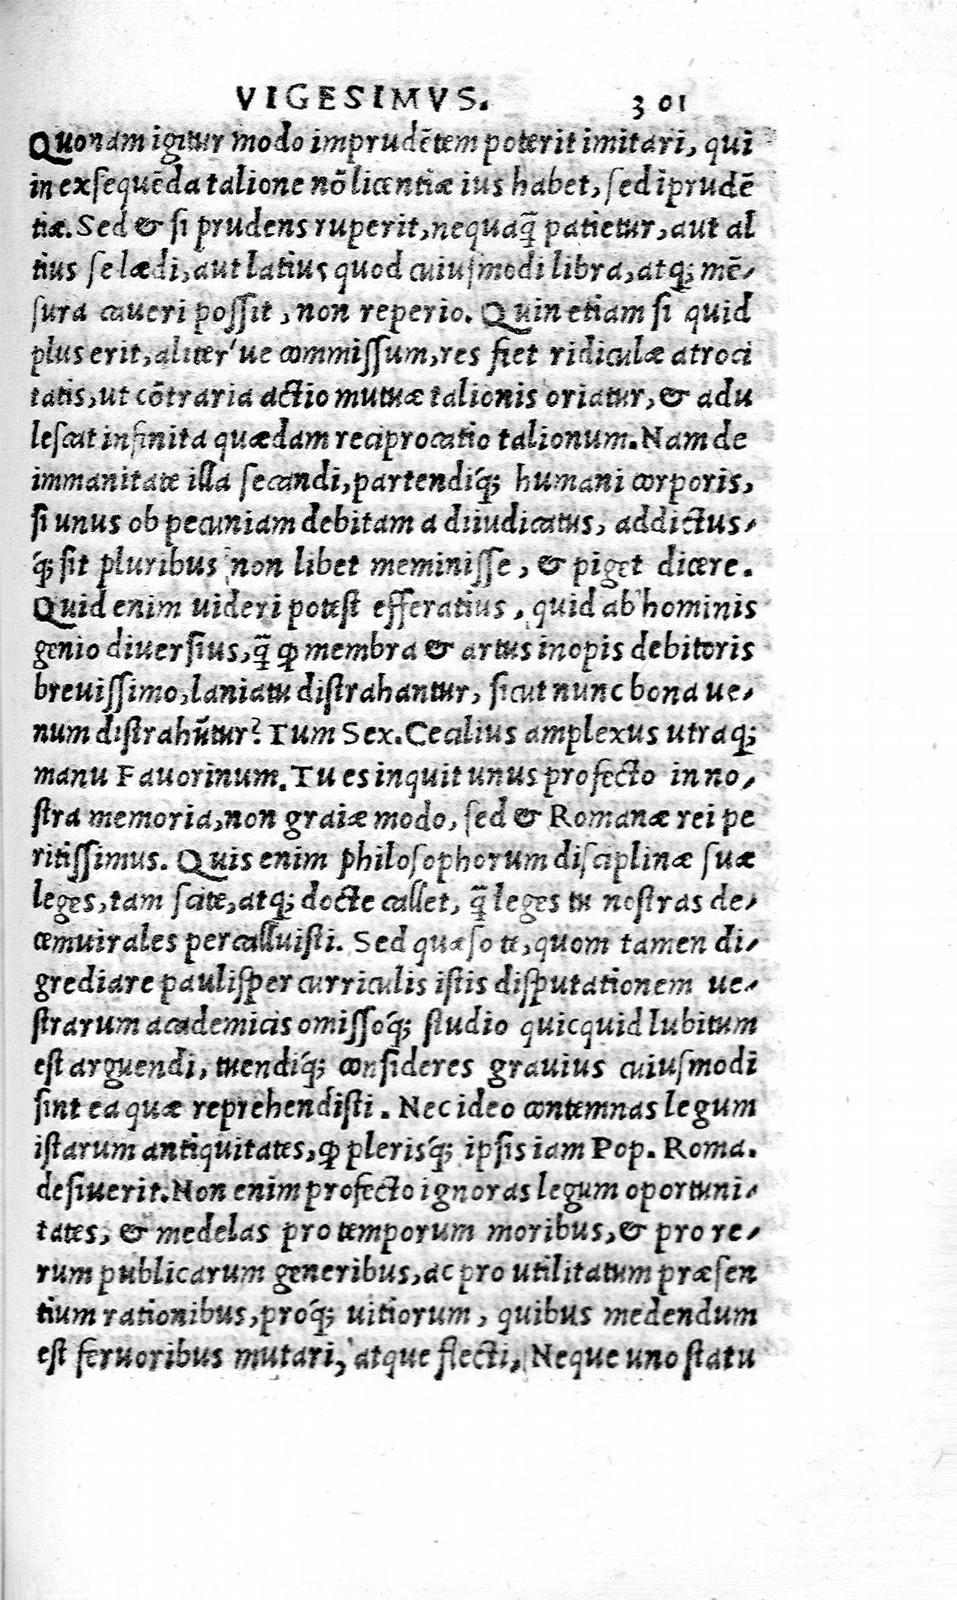 VIGESIMVS. 301
Quonam igitur modo imprudẽtem poterit imitari, qui
in exſequẽda talione nõ licentiæ ius habet, ſed ĩprudẽ
tiæ. Sed & ſi prudens ruperit, nequaq̃ patietur, aut al
tius ſe lædi, aut latius, quod cuiuſmodi libra, atq; mẽ-
ſura caueri poſſit, non reperio. Quin etiam ſi quid
plus erit, aliter'ue commiſſum, res fiet ridiculæ atroci
tatis, ut cõtraria actio mutuæ talionis oriatur, & adu
leſcat infinita quædam reciprocatio talionum. Nam de
immanitate illa ſecandi, partendiq́; humani corporis,
ſi unus ob pecuniam debitam a diiudicatus, addictus-
q́; ſit pluribus non libet meminiſſe, & piget dicere.
Quid enim uideri poteſt efferatius, quid ab hominis
genio diuerſius, q̃ ꝙ membra & artus inopis debitoris
breuiſſimo, laniatu diſtrahantur, ſicut nunc bona ue-
num diſtrahũtur? Tum Sex. Cecilius amplexus utraq;
manu Fauorinum. Tu es inquit unus profecto in no-
ſtra memoria, non graiæ modo, ſed & Romanæ rei pe
ritiſſimus. Quis enim philoſophorum diſciplinæ ſuæ
leges, tam ſcite, atq; docte callet, q̃ leges tu noſtras de-
cemuirales percalluiſti. Sed quæſo te, quom tamen di-
grediare pauliſper curriculis iſtis diſputationem ue-
ſtrarum academicis omiſſoq́; ſtudio quicquid lubitum
eſt arguendi, tuendiq́; conſideres grauius cuiuſmodi
ſint ea quæ reprehendiſti. Nec ideo contemnas legum
iſtarum antiquitates, ꝙ pleriſq́; ipſis iam Pop. Roma.
deſiuerit. Non enim profecto ignoras legum oportuni-
tates, & medelas pro temporum moribus, & pro re-
rum publicarum generibus, ac pro utilitatum præſen
tium rationibus, proq́; uitiorum, quibus medendum
eſt feruoribus mutari, atque flecti, Neque uno ſtatu